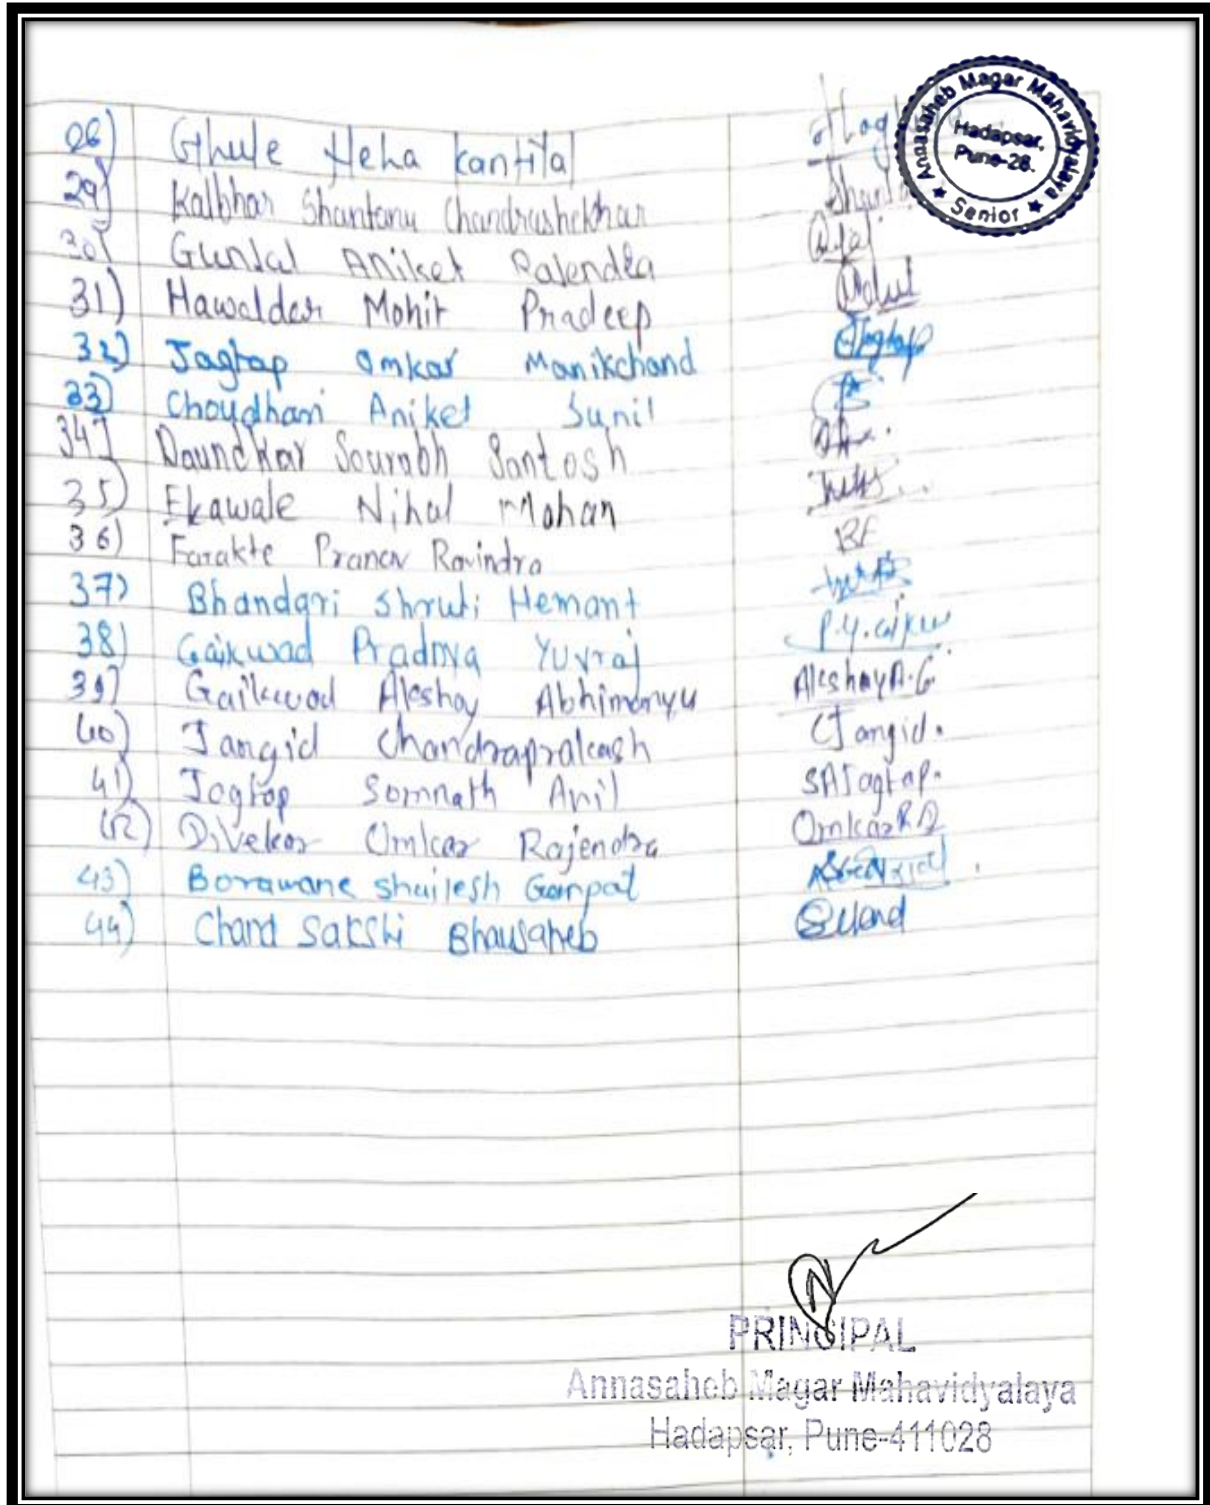 Annasaheb Magar Mahavidyalaya
Hadapsar,
Pune-28.
★ Senior ★
28) Ghule Neha Kantilal
29) Kalbhor Shantanu Chandrashekhar
30) Gunjal Aniket Rajendra
31) Hawaldar Mohit Pradeep
32) Jagtap Omkar Manikchand Jagtap
33) Choudhari Aniket Sunil
34] Daundkar Sourabh Santosh
35) Ekawale Nihal Mohan
36) Farakte Pranav Ravindra
37) Bhandari Shruti Hemant
38) Gaikwad Pradnya Yuvraj
39) Gaikwad Akshay Abhimanyu Akshay A.G.
40) Jangid Chandraprakash CJangid.
41) Jagtap Somnath Anil SAJagtap.
42) Divekar Omkar Rajendra Omkar RD
43) Borawane Shailesh Ganpat
44) Chand Sakshi Bhausaheb SChand
PRINCIPAL
Annasaheb Magar Mahavidyalaya
Hadapsar, Pune-411028